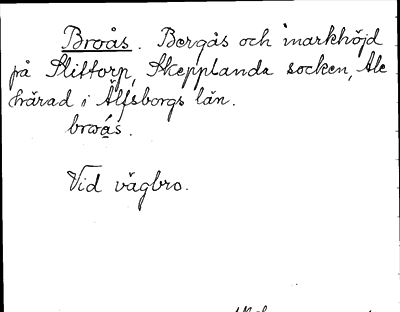 Broås. Bergås och markhöjd
på Slittorp, Skepplanda socken, Ale
härad i Älfsborgs län.
broás.
Vid vägbro.